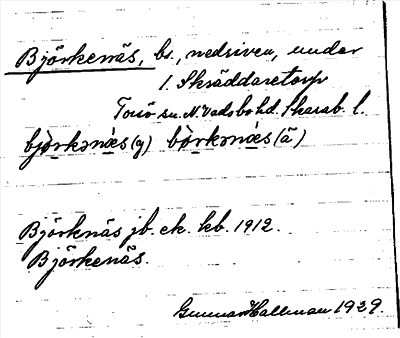 Björkenäs, bs., nedriven, under
1. Skräddaretorp
Torsö sn. N. Vadsbo hd. Skarab. l.
bjò̀rkənǽs (y) bò̀rkənǽs (ä)
Björknäs jb. ek. kb. 1912.
Björkenäs.
Gunnar Hallman 1929.